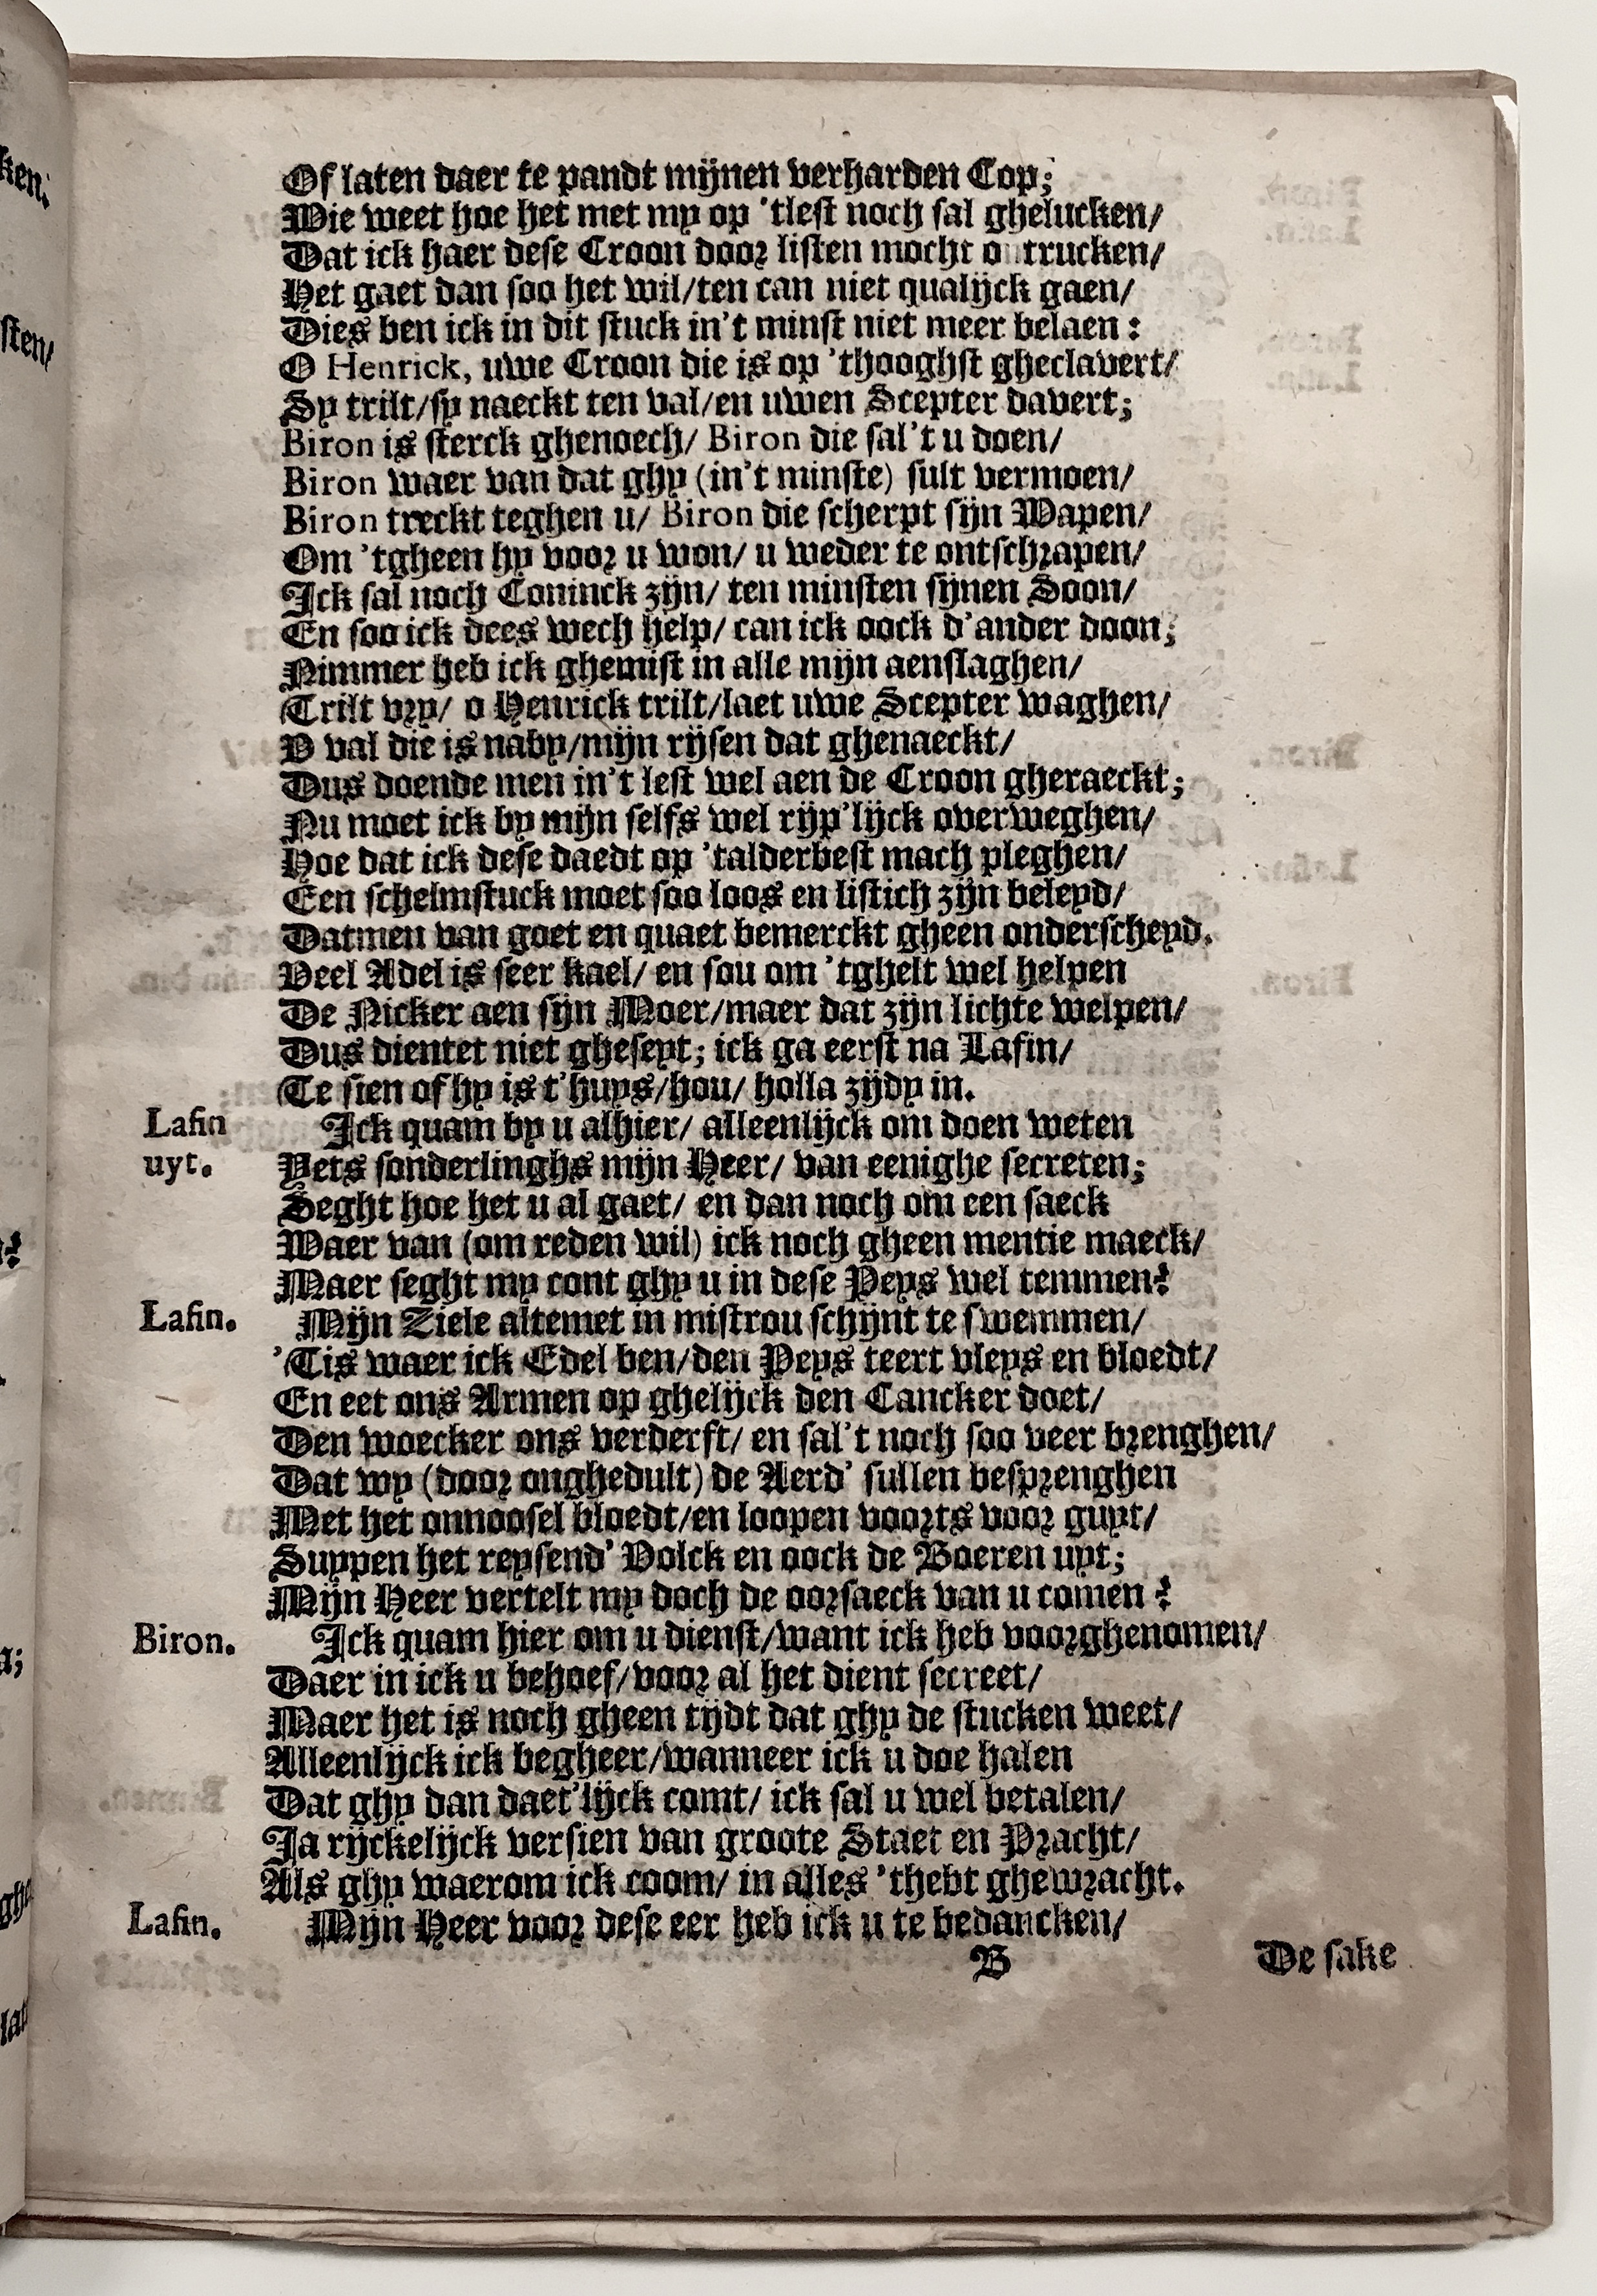 Of laten daer te pandt mijnen verharden Cop;
Wie weet hoe het met my op 'tlest noch sal ghelucken/
Dat ick haer dese Croon door listen mocht o trucken/
Het gaet dan soo het wil/ten can niet qualijck gaen/
Dies ben ick in dit stuck in't minst niet meer belaen:
O Henrick, uwe Croon die is op 'thooghst gheclavert/
Sy trilt/sy naeckt ten val/en uwen Scepter davert;
Biron is sterck ghenoech/ Biron die sal't u doen/
Biron waer van dat ghy (in't minste) sult vermoen/
Biron treckt teghen u/ Biron die scherpt sijn Wapen/
Om 'tgheen hy voor u won/ u weder te ontschrapen/
Ick sal noch Coninck zijn/ ten minsten sijnen Soon/
En soo ick dees wech help/ can ick oock d'ander doon;
Nimmer heb ick ghemist in alle mijn aenslaghen/
Trilt vry/ o Henrick trilt/laet uwe Scepter waghen/
V val die is naby/mijn rijsen dat ghenaeckt/
Dus doende men in't lest wel aen de Croon gheraeckt;
Nu moet ick by mijn selfs wel rijp'lijck overweghen/
Hoe dat ick dese daedt op 'talderbest mach pleghen/
Een schelmstuck moet soo loos en listich zijn beleyd/
Datmen van goet en quaet bemerckt gheen onderscheyd.
Veel Adel is seer kael/ en sou om 'tghelt wel helpen
De Nicker aen sijn Moer/maer dat zijn lichte welpen/
Dus dientet niet gheseyt; ick ga eerst na Lafin/
Te sien of hy is t'huys/hou/ holla zijdy in.
Lafin uyt. Ick quam by u alhier/ alleenlijck om doen weten
Yets sonderlinghs mijn Heer/ van eenighe secreten;
Seght hoe het u al gaet/ en dan noch om een saeck
Waer van (om reden wil) ick noch gheen mentie maeck/
Maer seght my cont ghy u in dese Peys wel temmen?
Lafin. Mijn Ziele altemet in mistrou schijnt te swemmen/
'Tis waer ick Edel ben/den Peys teert vleys en bloedt/
En eet ons Armen op ghelijck den Cancker doet/
Den woecker ons verderft/ en sal't noch soo veer brenghen/
Dat wy (door onghedult) de Aerd' sullen besprenghen
Met het onnoosel bloedt/en loopen voorts voor guyt/
Suypen het reysend' Volck en oock de Boeren uyt;
Mijn Heer vertelt my doch de oorsaeck van u comen?
Biron. Ick quam hier om u dienst/want ick heb voorghenomen/
Daer in ick u behoef/voor al het dient secreet/
Maer het is noch gheen tijdt dat ghy de stucken weet/
Alleenlijck ick begheer/wanneer ick u doe halen
Dat ghy dan daet'lijck comt/ ick sal u wel betalen/
Ja rijckelijck versien van groote Staet en Pracht/
Als ghy waerom ick coom/ in alles 'thebt ghewracht.
Lafin. Mijn Heer voor dese eer heb ick u te bedancken/
B De sake